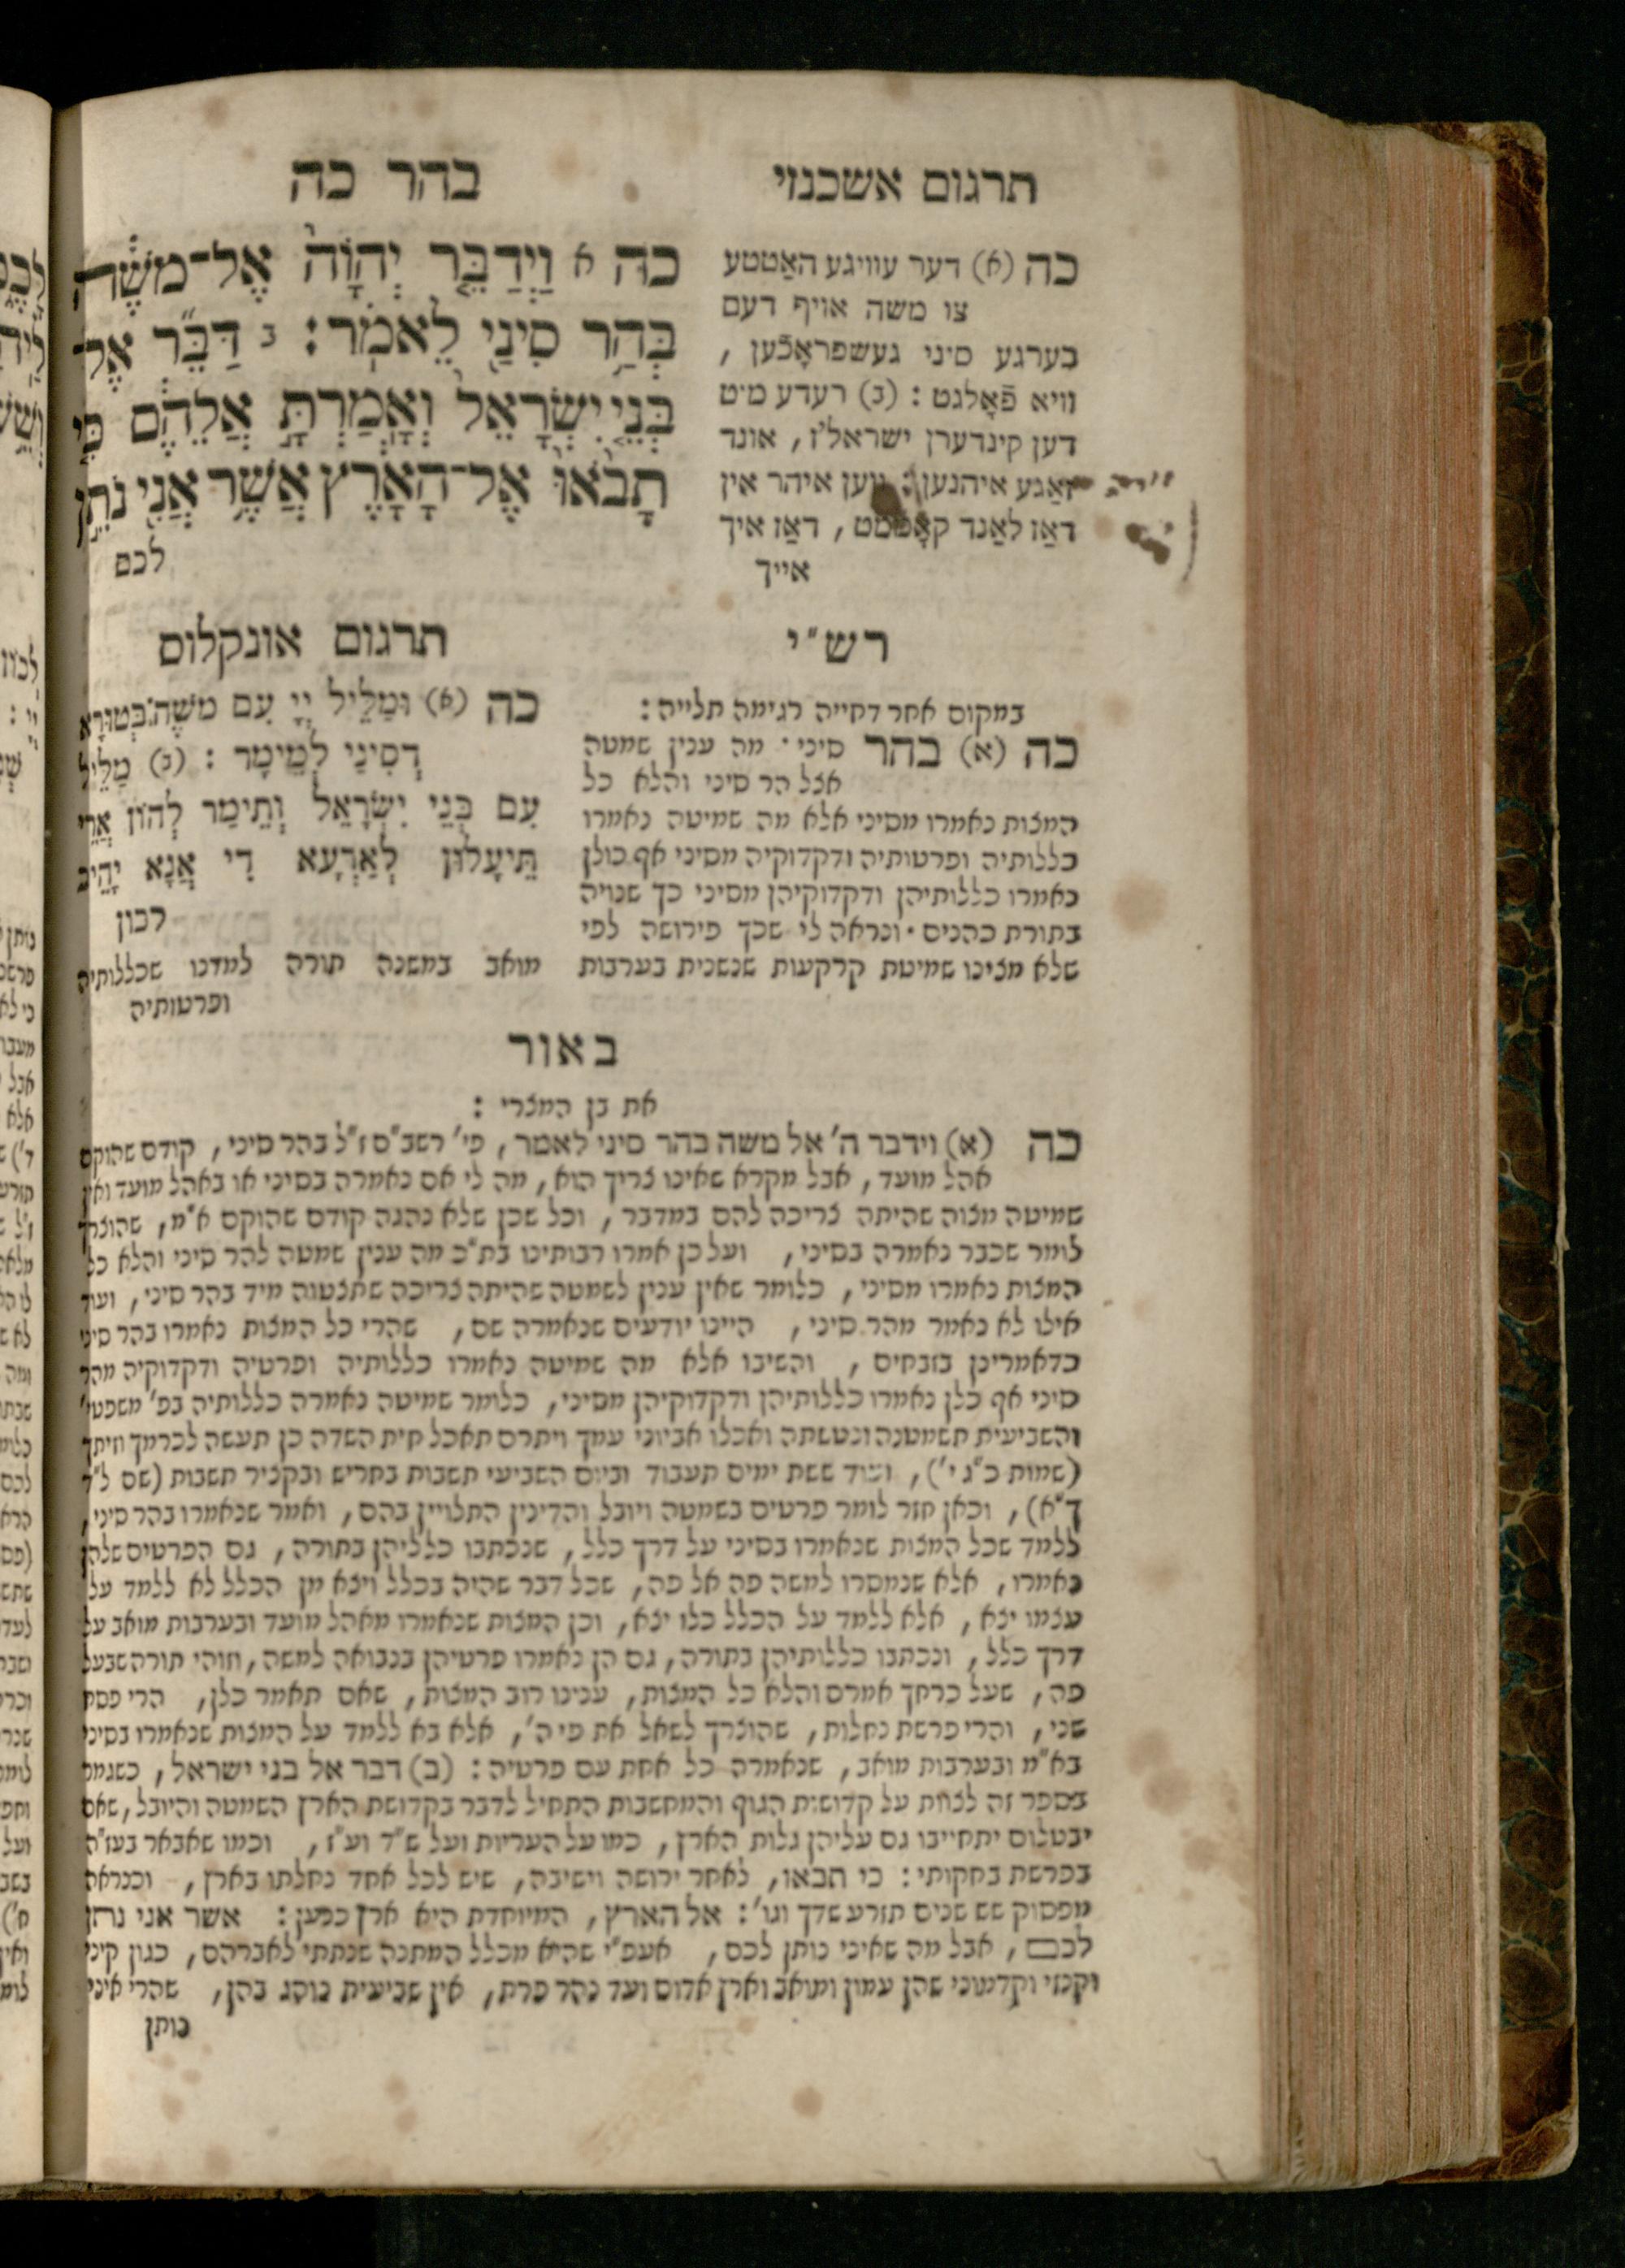 תרגום אשכנזי
בהר כה
כה (א) דער עוויגע האַטטע
צו משה אויף דעם
בערגע סיני געשפראָכען ,
וויא פֿאָלגט : (ב) רעדע מיט
דען קינדערן ישראל'ז, אונד
זאַגע איהנען : ווען איהר אין
דאַז לאַנד קאָממט, דאַז איך
אייך
כה א וַיְדַבֵּ֤ר יְהוָֹה֙ אֶל־מֹשֶׁ֔ה
בְּהַ֥ר סִינַ֖י לֵאמֹֽר : ב דַּבֵּ֞ר אֶל־
בְּנֵ֤י יִשְׂרָאֵל֙ וְאָמַרְתָּ֣ אֲלֵהֶ֔ם כִּ֤י
תָבֹ֙אוּ֙ אֶל־הָאָ֔רֶץ אֲשֶׁ֥ר אֲנִ֖י נֹתֵ֣ן
לכם
רש"י
במקום אחר דחייה רגימה תלייה :
כה (א) בהר סיני · מה ענין שמטה
אצל הר סיני והלא כל
המצות נאמרו מסיני אלא מה שמיטה נאמרו
כללותיה ופרטותיה ודקדוקיה מסיני אף כולן
נאמרו כללותיהן ודקדוקיהן מסיני כך שנויה
בתורת כהנים · ונראה לי שכך פירושה לפי
שלא מצינו שמיטת קרקעות שנשנית בערבות
תרגום אונקלוס
כה (א) וּמַלֵּיל יְיָ עִם מֹשֶׁה בְּטוּרָא
דְסִינַי לְמֵימָר : (ב) מַלֵּיל
עִם בְּנֵי יִשְׂרָאֵל וְתֵימַר לְהוֹן אֲרֵי
תֵּיעֲלוּן לְאַרְעָא דִי אֲנָא יָהֵיב
לכון
מואב במשנה תורה למדנו שכללותיה
ופרטותיה
באור
את בן המצרי :
כה (א) וידבר ה' אל משה בהר סיני לאמר, פי' רשב"ם ז"ל בהר סיני, קודם שהוקם
אהל מועד, אבל מקרא שאינו צריך הוא, מה לי אם נאמרה בסיני או באהל מועד ואין
שמיטה מצוה שהיתה צריכה להם במדבר, וכל שכן שלא נהגה קודם שהוקם א"מ, שהוצרך
לומר שכבר נאמרה בסיני, ועל כן אמרו רבותינו בת"כ מה ענין שמטה להר סיני והלא כל
המצות נאמרו מסיני, כלומר שאין ענין לשמטה שהיתה צריכה שתצטוה מיד בהר סיני, ועוד
אילו לא נאמר מהר סיני, היינו יודעים שנאמרה שם, שהרי כל המצות נאמרו בהר סיני
כדאמרינן בזבחים, והשיבו אלא מה שמיטה נאמרו כללותיה ופרטיה ודקדוקיה מהר
סיני אף כלן נאמרו כללותיהן ודקדוקיהן מסיני, כלומר שמיטה נאמרה כללותיה בפ' משפטי'
והשביעית תשמטנה ונטשתה ואכלו אביוני עמך ויתרם תאכל חית השדה כן תעשה לכרמך וזיתך
(שמות כ"ג י'), ועוד ששת ימים תעבוד וביום השביעי תשבות בחריש ובקציר תשבות (שם ל"ד
ך"א), וכאן חזר לומר פרטים בשמטה ויובל והדינין התלויין בהם, ואמר שנאמרו בהר סיני,
ללמד שכל המצות שנאמרו בסיני על דרך כלל, שנכתבו כלליהן בתורה, גם הפרטים שלהן
נאמרו, אלא שנמסרו למשה פה אל פה, שכל דבר שהיה בכלל ויצא מן הכלל לא ללמד על
עצמו יצא, אלא ללמד על הכלל כלו יצא, וכן המצות שנאמרו מאהל מועד ובערבות מואב על
דרך כלל, ונכתבו כללותיהן בתורה, גם הן נאמרו פרטיהן בנבואה למשה, וזוהי תורה שבעל
פה, שעל כרחך אמרם והלא כל המצות, ענינו רוב המצות, שאם תאמר כלן, הרי פסח
שני, והרי פרשת נחלות, שהוצרך לשאל את פי ה', אלא בא ללמד על המצות שנאמרו בסיני
בא"מ ובערבות מואב, שנאמרה כל אחת עם פרטיה : (ב) דבר אל בני ישראל, כשגמר
בספר זה לצות על קדושת הגוף והמחשבות התחיל לדבר בקדושת הארץ השמטה והיובל, שאם
יבטלום יתחייבו גם עליהן גלות הארץ, כמו על העריות ועל ש"ד וע"ז, וכמו שאבאר בעז"ה
בפרשת בחקותי : כי תבאו, לאחר ירושה וישיבה, שיש לכל אחד נחלתו בארץ, וכנראה
מפסוק שש שנים תזרע שדך וגו' : אל הארץ, המיוחדת היא ארץ כנען : אשר אני נתן
לכם, אבל מה שאיני נותן לכם, אעפ"י שהיא מכלל המתנה שנתתי לאברהם, כגון קיני
וקנזי וקדמוני שהן עמון ומואב וארץ אדום ועד נהר פרת, אין שביעית נוהג בהן, שהרי איני
נותן